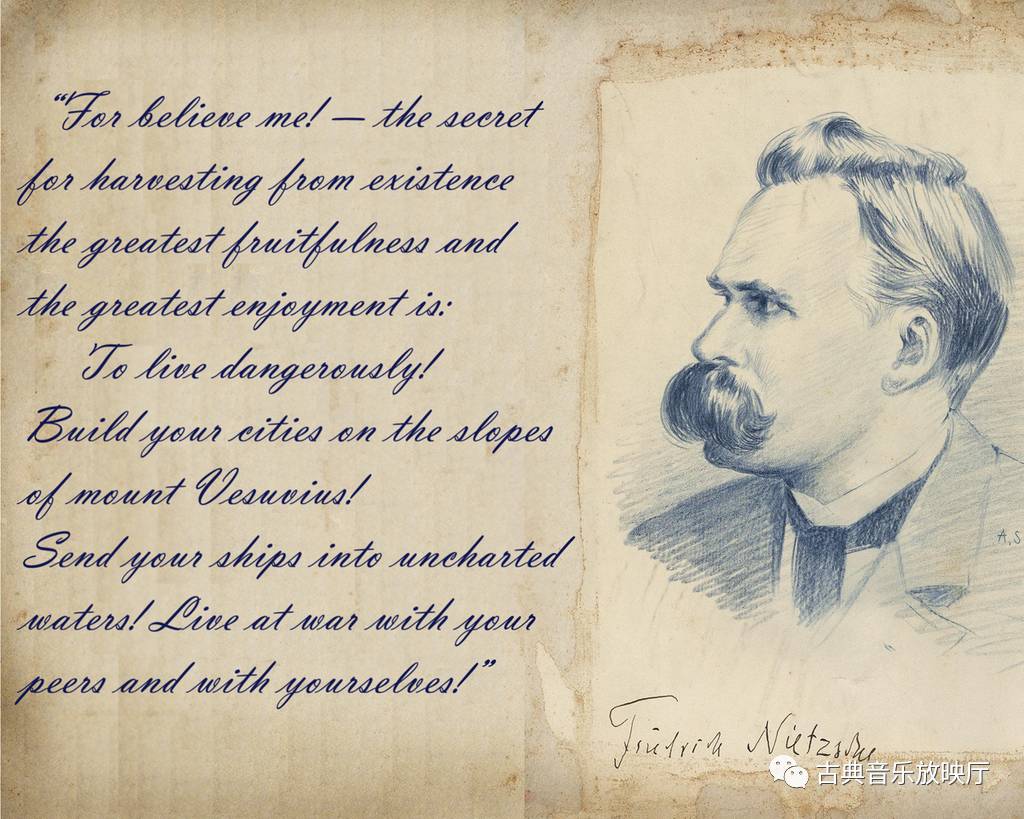 “For believe me! — the secret
for harvesting from existence
the greatest fruitfulness and
the greatest enjoyment is:
To live dangerously!
Build your cities on the slopes
of mount Vesuvius!
Send your ships into uncharted
waters! Live at war with your
peers and with yourselves!”
A.S
Friedrich Nietzsche
古典音乐放映厅